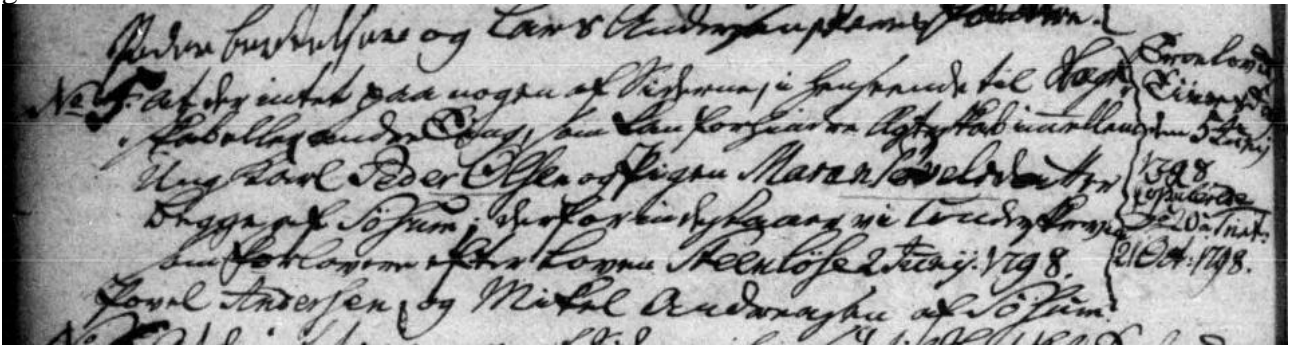 og Lars Andersen
No 5. At der intet paa nogen af Siderne, i Henseende til Slægt-
skab eller andre Ting, som kan forhindre Ægteskab imellem
Ung Karl Peder Olsen og Pigen Maren Povelsdatter
begge af Søsum, derfor indestaaer vi underskrevne
som Forlovere efter Loven Steenløse 2 Junij. 1798.
Povel Andersen, og Mikel Andreasen af Søsum.
Troelovede
den 5te Junij
1798
Copulerede
20 Trinit:
21 Oct: 1798.